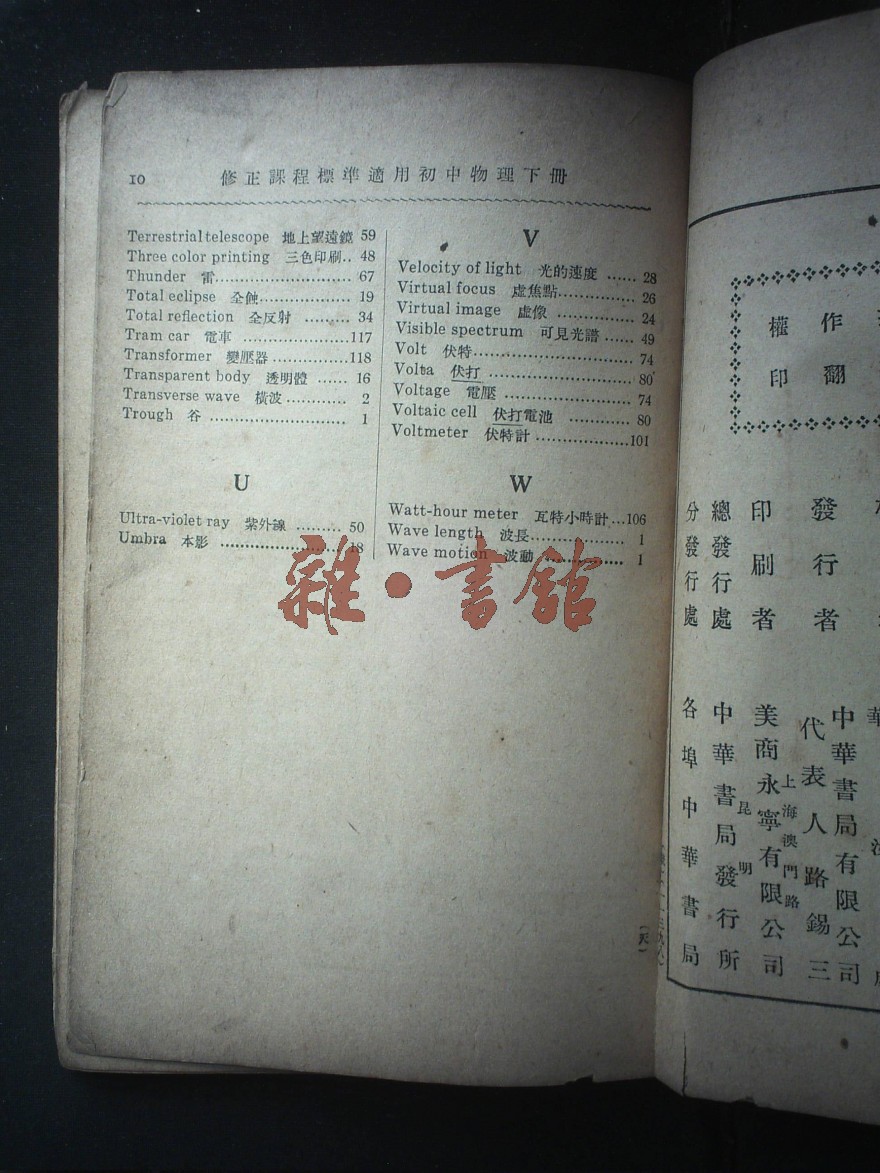 10 修正課程標準適用初中物理下冊
Terrestrial telescope 地上望遠鏡 59
Three color printing 三色印刷.. 48
Thunder 雷........................ 67
Total eclipse 全蝕................ 19
Total reflection 全反射 ......... 34
Tram car 電車 ...................117
Transformer 變壓器..............118
Transparent body 透明體 ...... 16
Transverse wave 橫波............ 2
Trough 谷 ......................... 1
U
Ultra-violet ray 紫外線 ......... 50
Umbra 本影 ...................... 18
V
Velocity of light 光的速度 ...... 28
Virtual focus 虛焦點.............. 26
Virtual image 虛像 ............... 24
Visible spectrum 可見光譜 ...... 49
Volt 伏特.............................. 74
Volta 伏打 .......................... 80
Voltage 電壓 ....................... 74
Voltaic cell 伏打電池 ........... 80
Voltmeter 伏特計 .................101
W
Watt-hour meter 瓦特小時計...106
Wave length 波長................. 1
Wave motion 波動 ............... 1
雜·書館
作
權
翻
印
中華書局有限公司
發行者
代表人路錫三
上海澳門路
印刷者
美商永寧有限公司
昆明
總發行處
中華書局發行所
分發行處
各埠中華書局